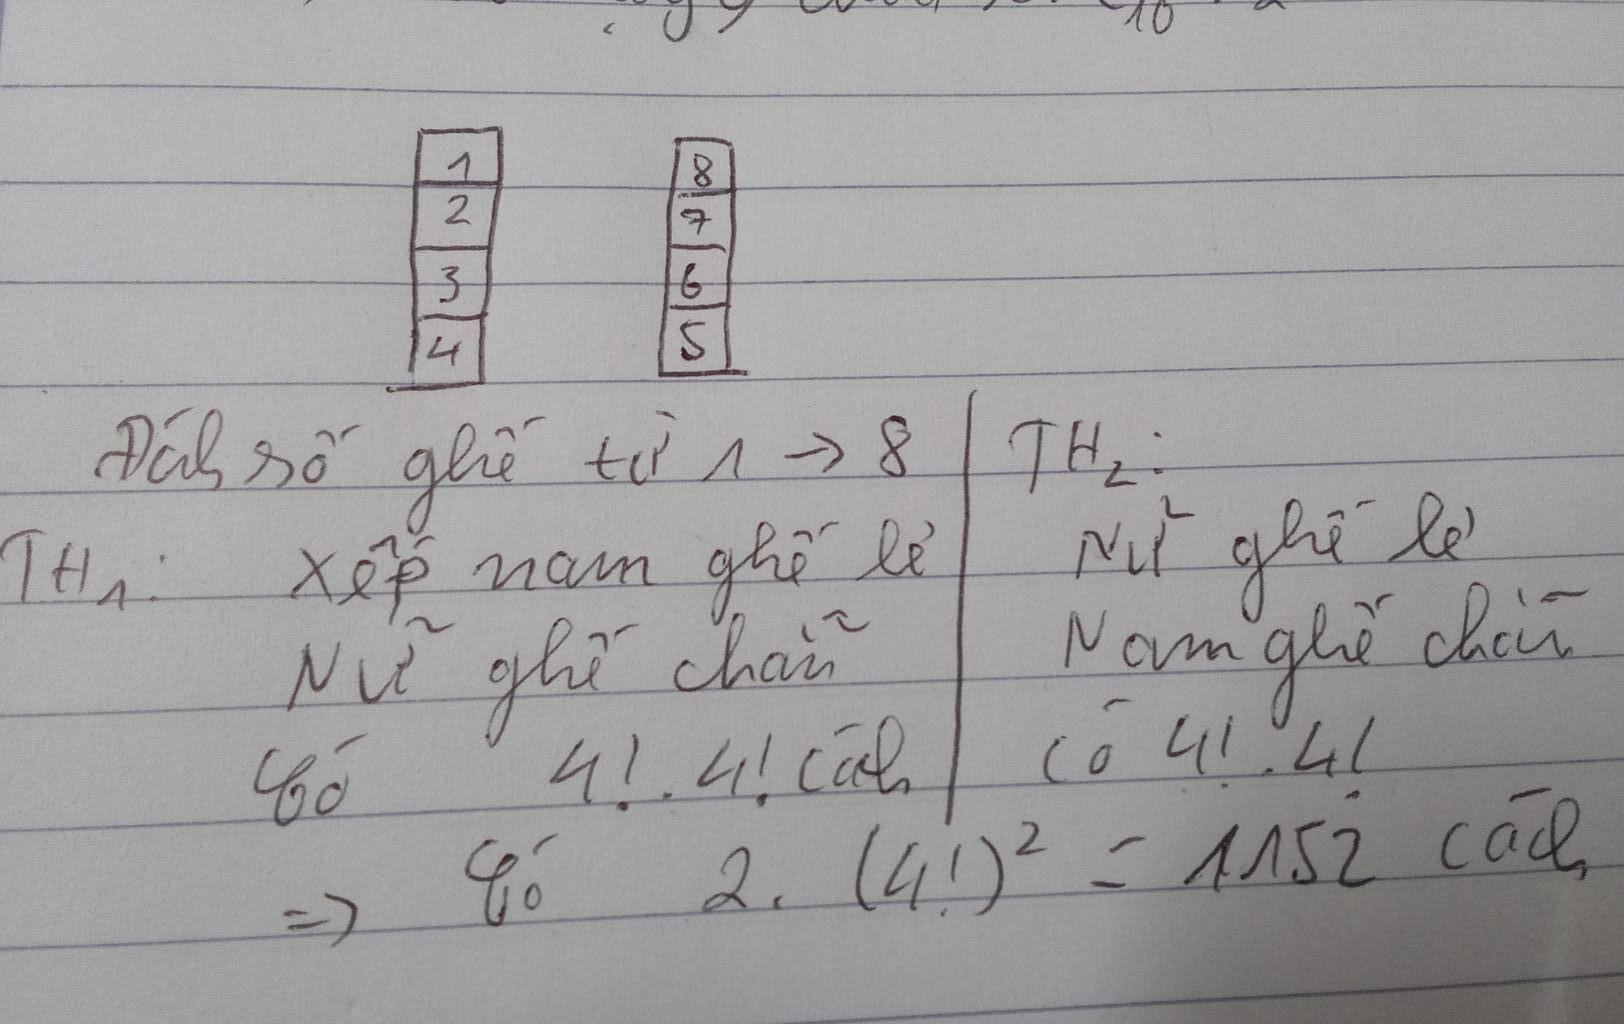 1 8
2 7
3 6
4 5
Đánh số ghế từ 1 → 8
TH1: Xếp nam ghế lẻ
Nữ ghế chẵn
Có 4!.4! cách
TH2:
Nữ ghế lẻ
Nam ghế chẵn
Có 4!.4!
=> Có 2.(4!)² = 1152 cách